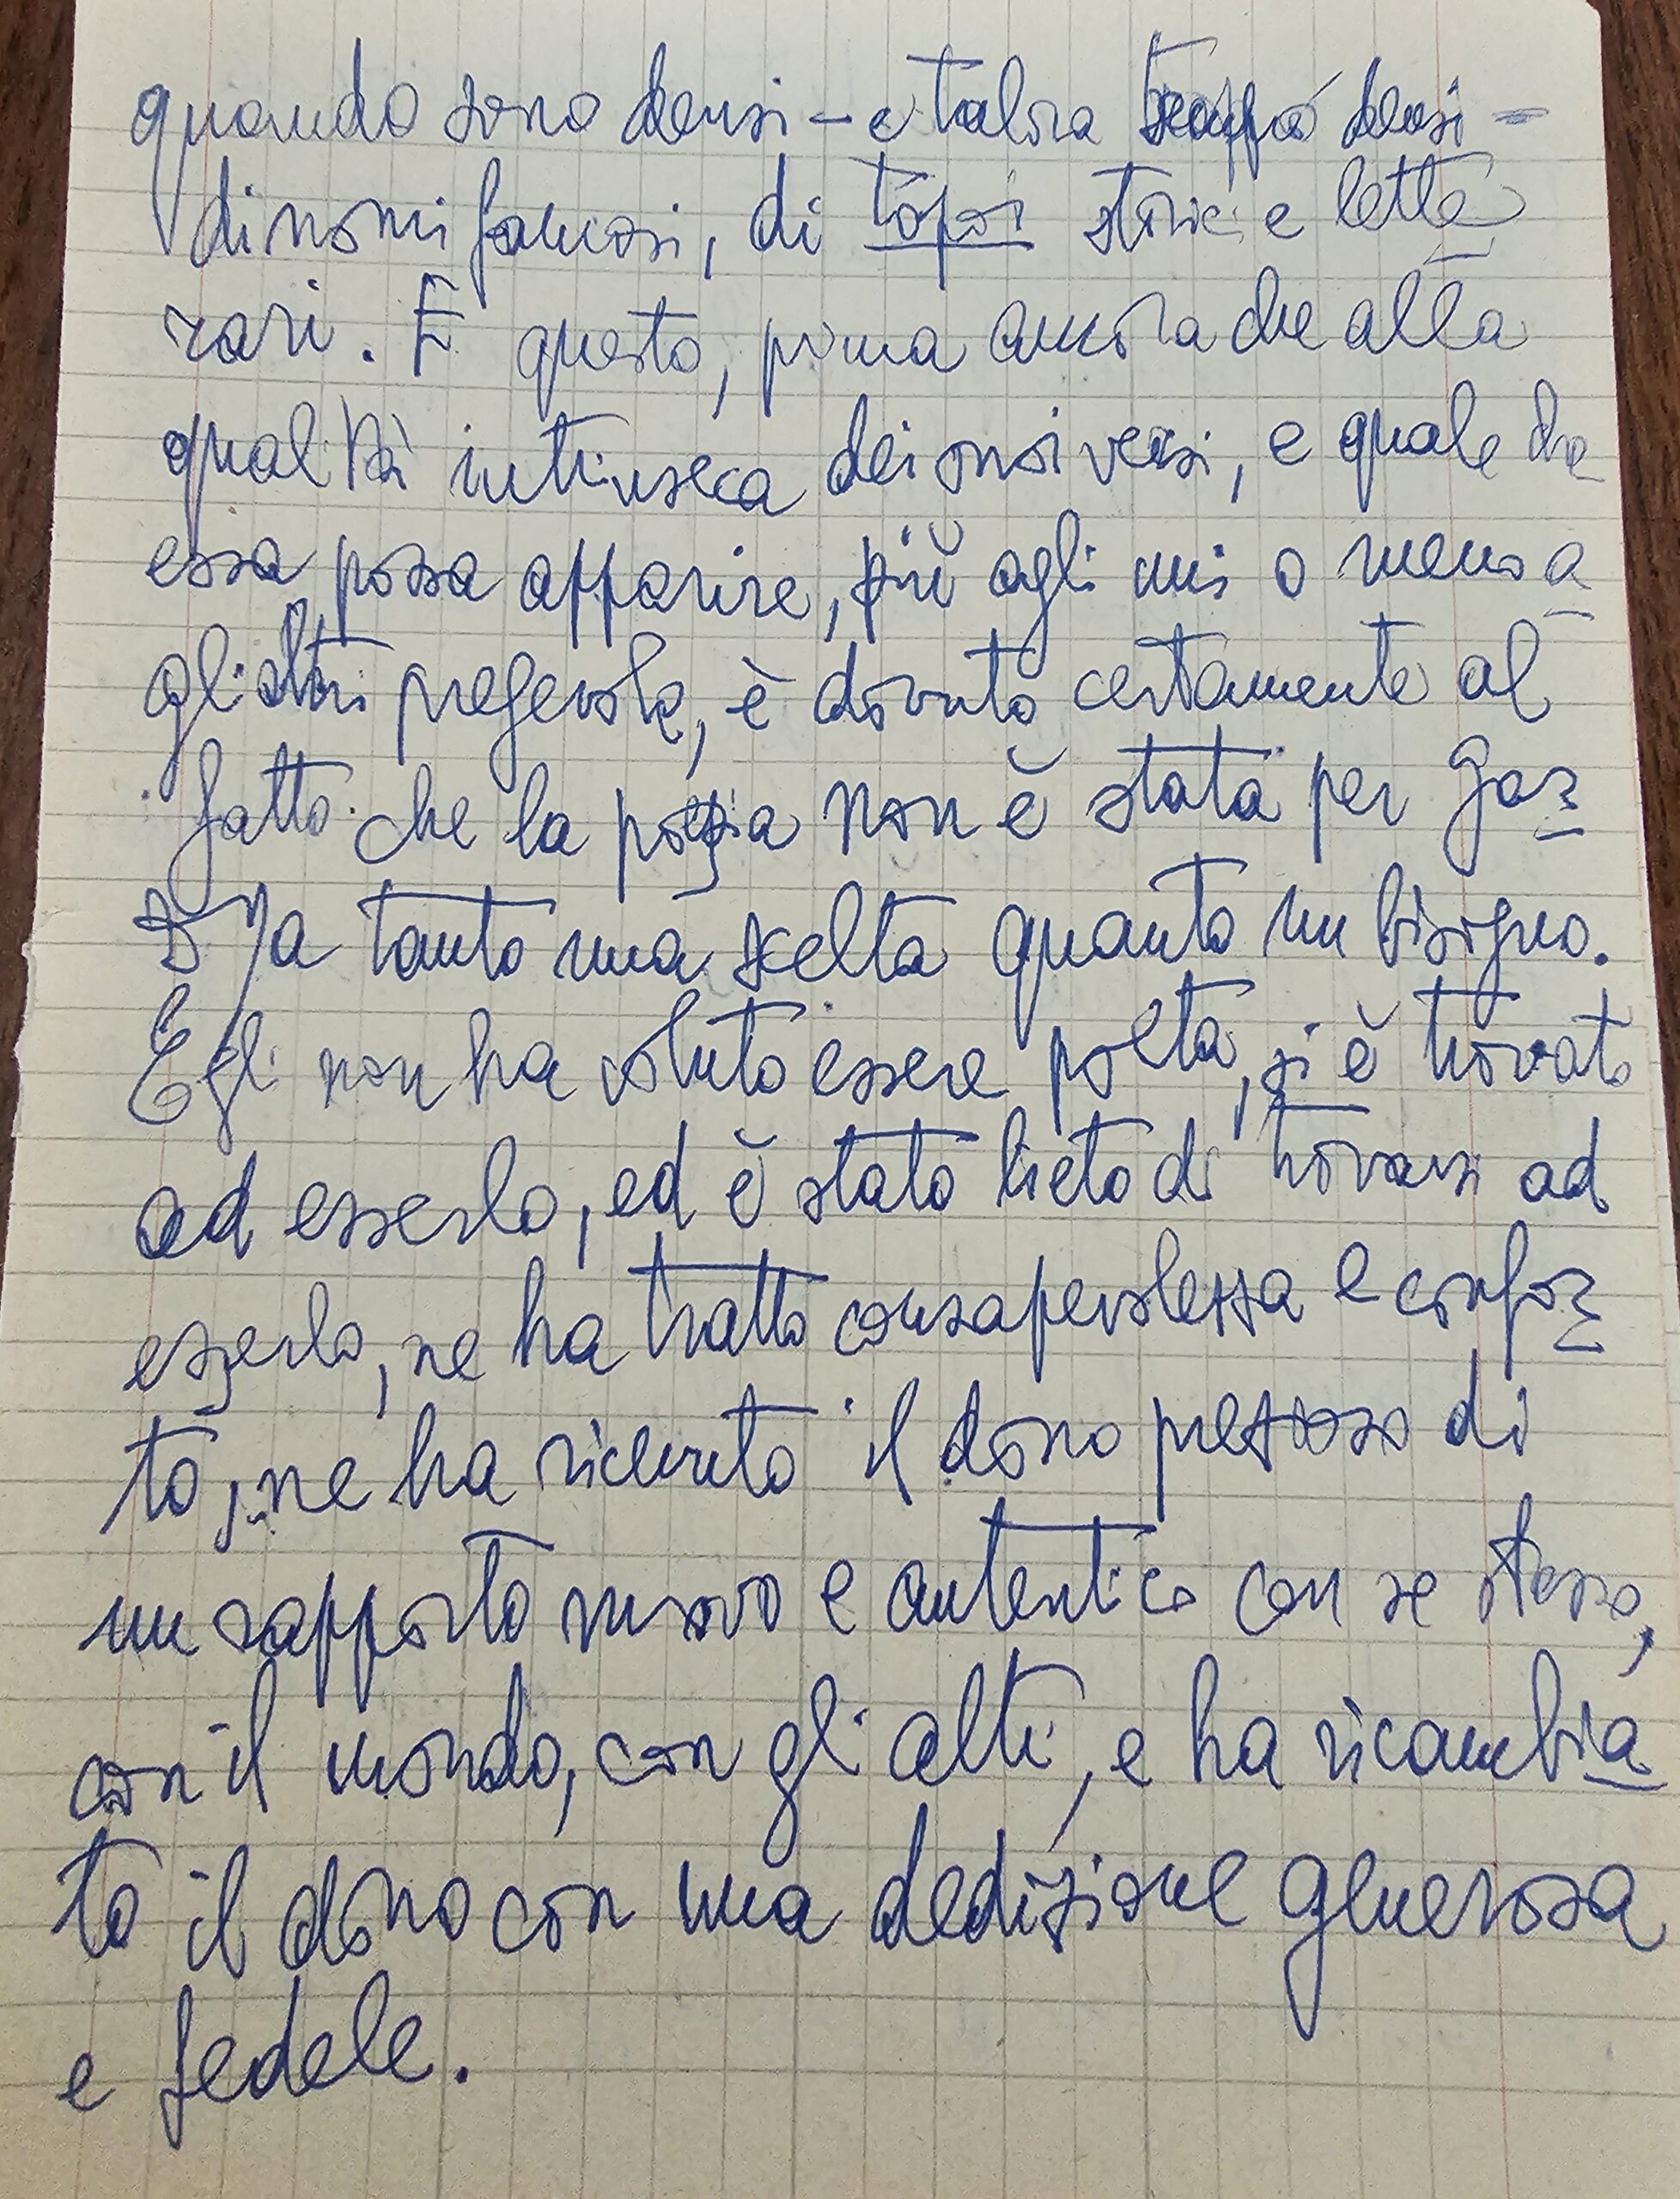 quando sono densi – e talora troppo densi –
di nomi famosi, di topoi storici e lette
rari. E questo, prima ancora che alla
qualità intrinseca dei suoi versi, e quale che
essa possa apparire, più agli uni o meno a
gli altri pregevole, è dovuto certamente al
fatto che la poesia non è stata per Gaz
tanto una scelta quanto un bisogno.
Egli non ha voluto essere poeta, si è trovato
ad esserlo, ed è stato lieto di trovarsi ad
esserlo, ne ha tratto consapevolezza e confor
to, ne ha ricevuto il dono prezioso di
un rapporto nuovo e autentico con se stesso,
con il mondo, con gli altri, e ha ricambia
to il dono con una dedizione generosa
e fedele.